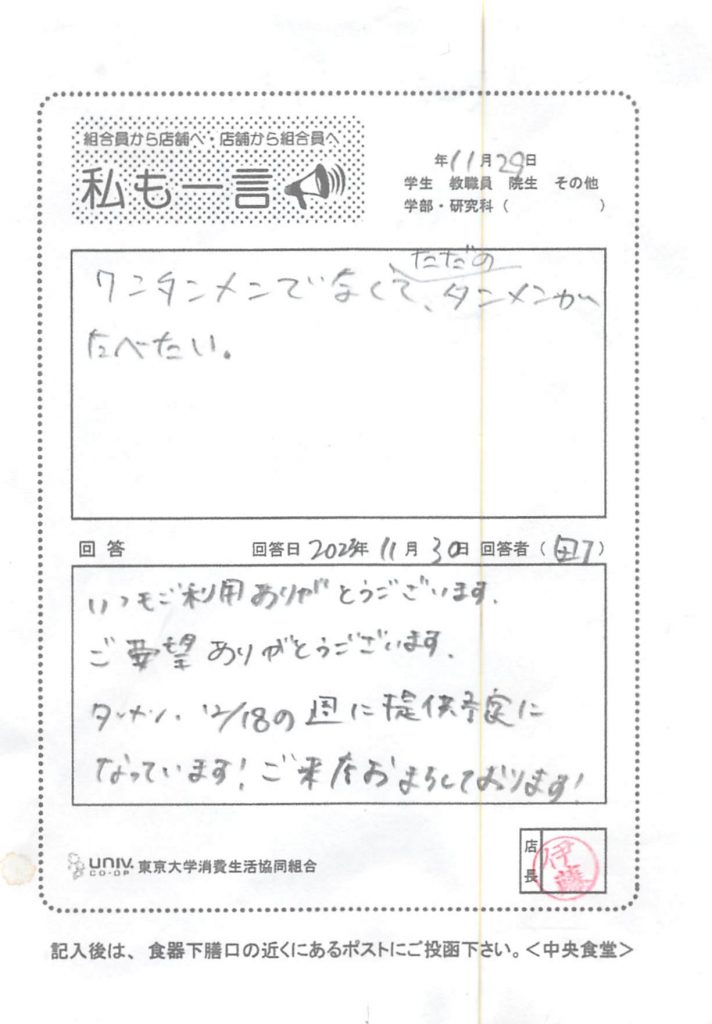 組合員から店舗へ・店舗から組合員へ
私も一言
年11月29日
学生 教職員 院生 その他
学部・研究科（ ）
ただの
ワンタンメンでなくて、タンメンが
たべたい。
回答 回答日2023年11月30日 回答者（ ）
いつもご利用ありがとうございます。
ご要望ありがとうございます。
タンメン、12/18の週に提供予定に
なっています！ご来店おまちしております！
UNIV. CO-OP 東京大学消費生活協同組合
店長 伊藤
記入後は、食器下膳口の近くにあるポストにご投函下さい。＜中央食堂＞